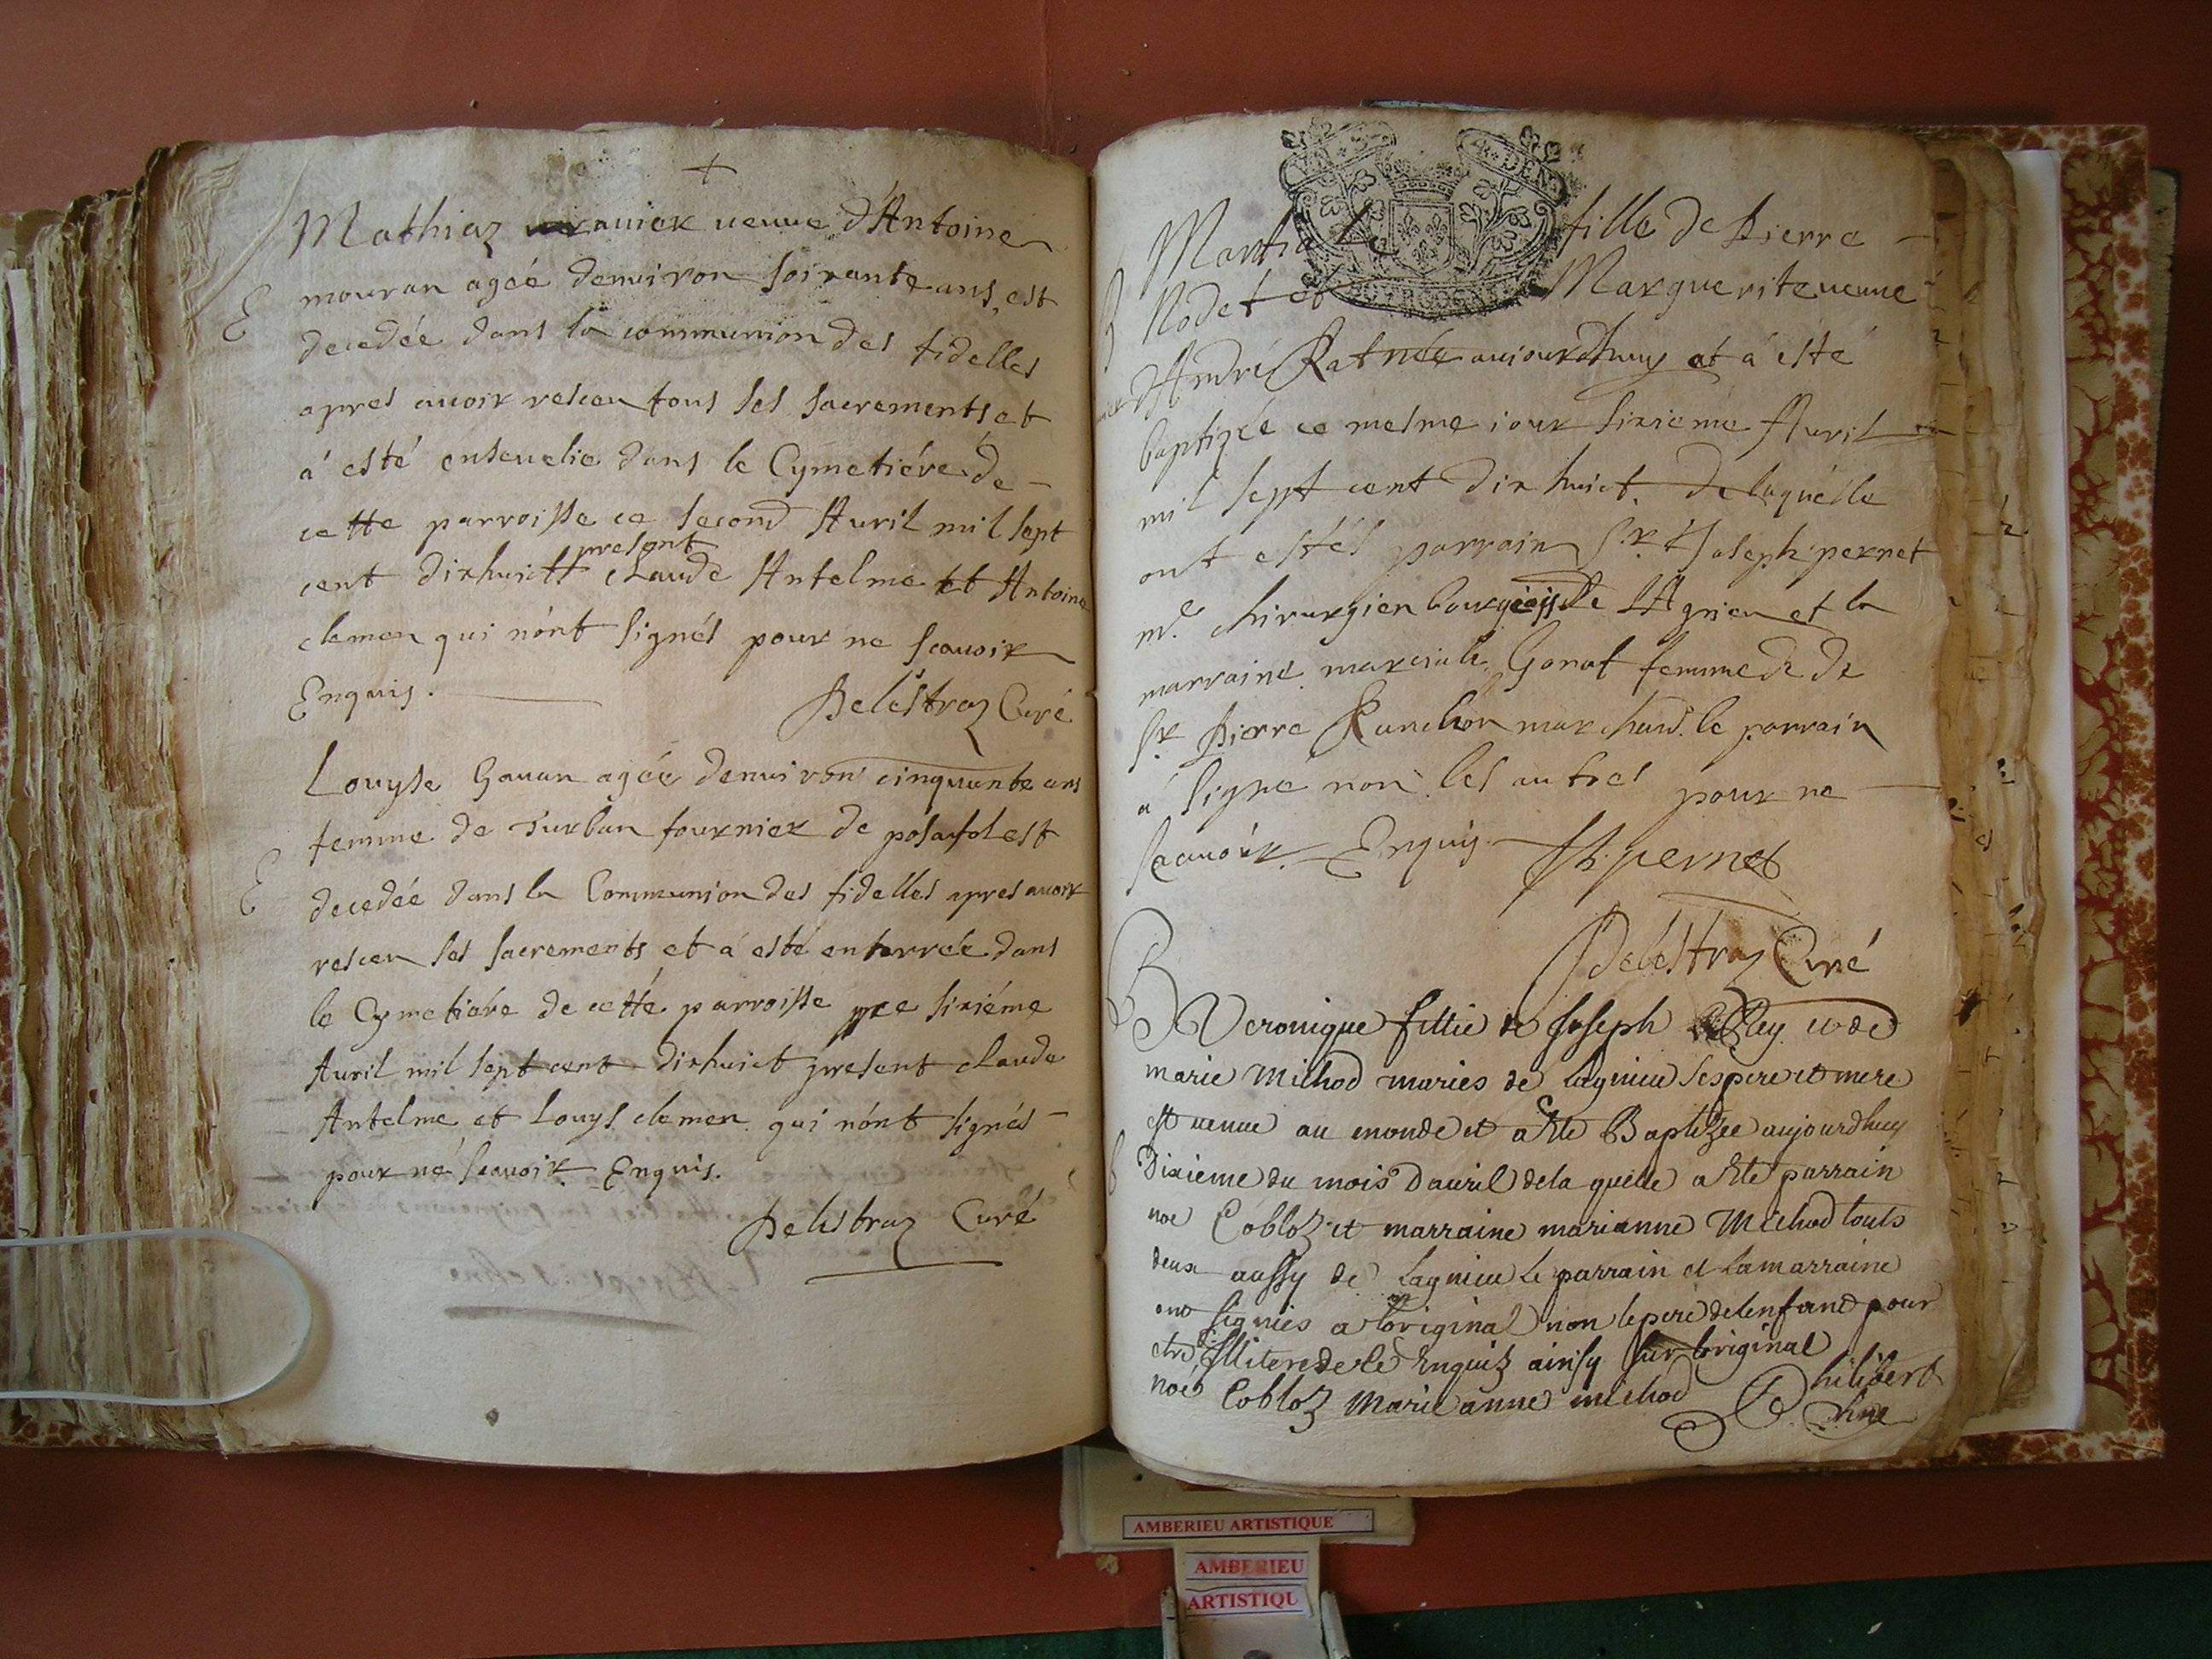 +
Mathiaz uravick ueuue d'Antoine
mouran agée denuiron soixante ans, est
E
decedée dans la communion des fidelles
apres auoir resceu tous ses sacrements et
a' esté enseuelie dans le Cymetiére de
cette parroisse ce second Auril mil sept
present
cent dixhuict Claude Antelme et Antoine
clemen qui nónt signés pour ne scauoir
Enquis.
Delestraz Curé
Louyse Gauan agée denuiron cinquante ans
femme de Turban fournier de posafol est
E
decedée dans la Communion des fidelles apres auoir
resceu ses sacrements et á esté enterrée dans
le Cymetiére de cetté parroisse ce sixiéme
Auril mil sept cent dixhuict present claude
Antelme et Louys clemen qui nónt signés
pour né scauoir Enquis.
Delestraz Curé
Martiale fille de Pierre
Nodet et Marguerite ueuue
d'André Rat née auiourdhuy et á esté
baptizée ce mesme iour sixieme Auril
mil sept cent dix huict. de laquélle
ont estés parrain Sr Joseph pernet
me. chirurgien bourgeois de LAgnieu et la
marraine marciale Gonat femme de de
Sr Pierre marchand. le parrain
a' signé non les autres pour ne
scauoir. Enquis
pernet
Delestraz Curé
B
Veronique fillie de Joseph Rey et de
marie Michod mariés de lagnieu ses pere et mere
est uenue au monde et a Ete Baptizee aujourdhuy
Dixieme du mois Dauril de la quelle a Ete parrain
noe Cobloz et marraine marianne Michod touts
deux aussy de Lagnieu le parrain et la marraine
ont signies a loriginal non le pere delenfant pour
etre Illitere de ce Enquiz ainsy sur loriginal
noe Cobloz Marie anne michod
Philibert
AMBERIEU ARTISTIQUE
AMBERIEU
ARTISTIQU